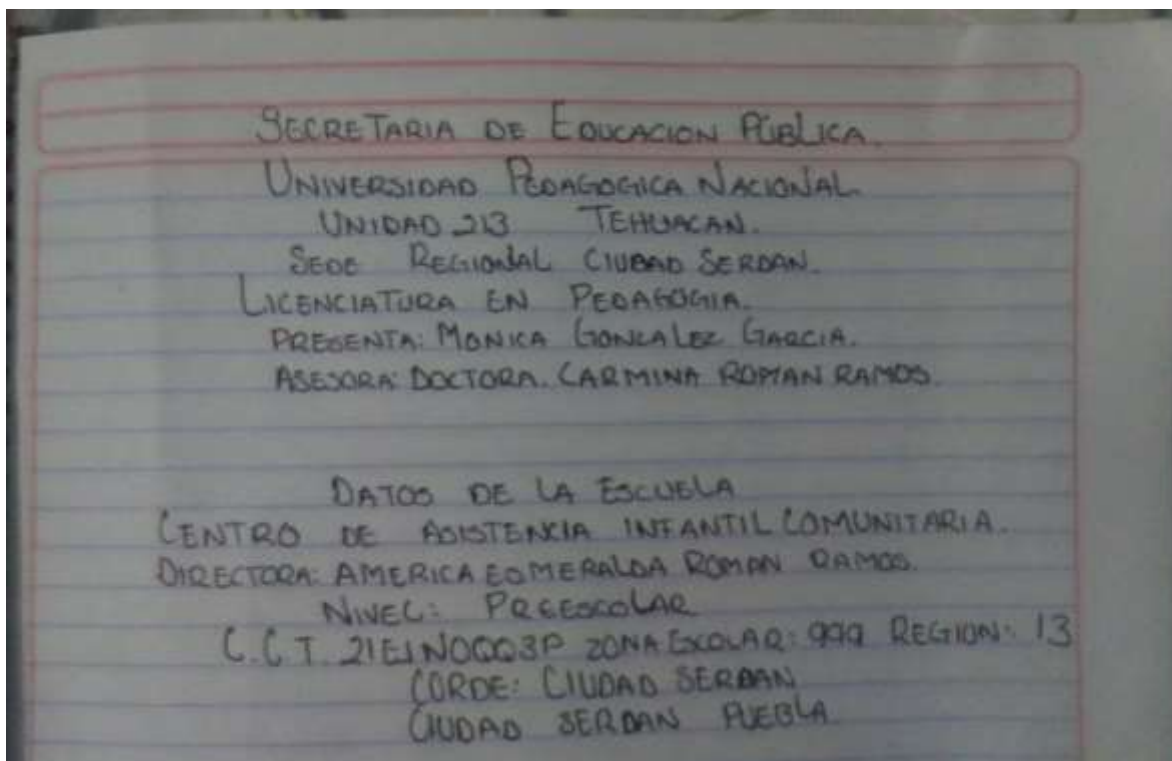 SECRETARIA DE EDUCACION PÚBLICA.
UNIVERSIDAD PEDAGOGICA NACIONAL
UNIDAD 213 TEHUACAN.
SEDE REGIONAL CIUDAD SERDAN.
LICENCIATURA EN PEDAGOGIA.
PRESENTA: MONICA GONZALEZ GARCIA.
ASESORA: DOCTORA. CARMINA ROMAN RAMOS.
DATOS DE LA ESCUELA
CENTRO DE ASISTENCIA INFANTIL COMUNITARIA.
DIRECTORA: AMERICA ESMERALDA ROMAN RAMOS.
NIVEL: PREESCOLAR
C.C.T. ZONA ESCOLAR: 999 REGION: 13
CORDE: CIUDAD SERDAN
CIUDAD SERDAN PUEBLA